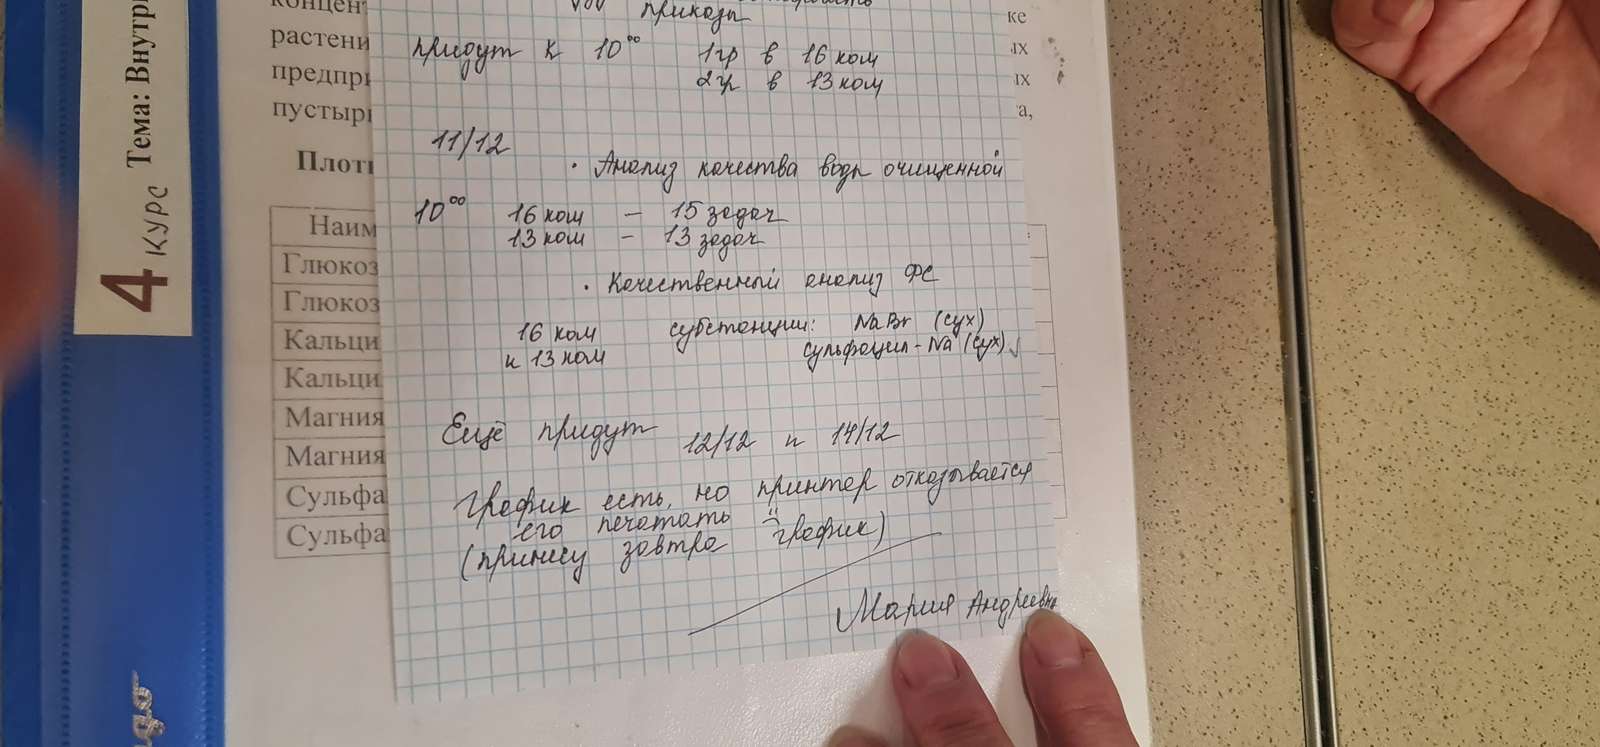 4 курс Тема: Внутри
концент
растени
предпри
пусты
ке
ых
ых
а,
Плотн
Наим
Глюкоз
Глюкоз
Кальци
Кальци
Магния
Магния
Сульфа
Сульфа
приказы
придут к 10⁰⁰ 1гр в 16 ком
2гр в 13 ком
11/12
· Анализ качества воды очищенной
10⁰⁰ 16 ком – 15 задач
13 ком – 13 задач
· Качественный анализ ФС
16 ком субстанции: NaBr (сух)
и 13 ком сульфацил-Na (сух)
Ещё придут 12/12 и 14/12
График есть, но принтер отказывается
его печатать
(принесу завтра график)
Мария Андреевна